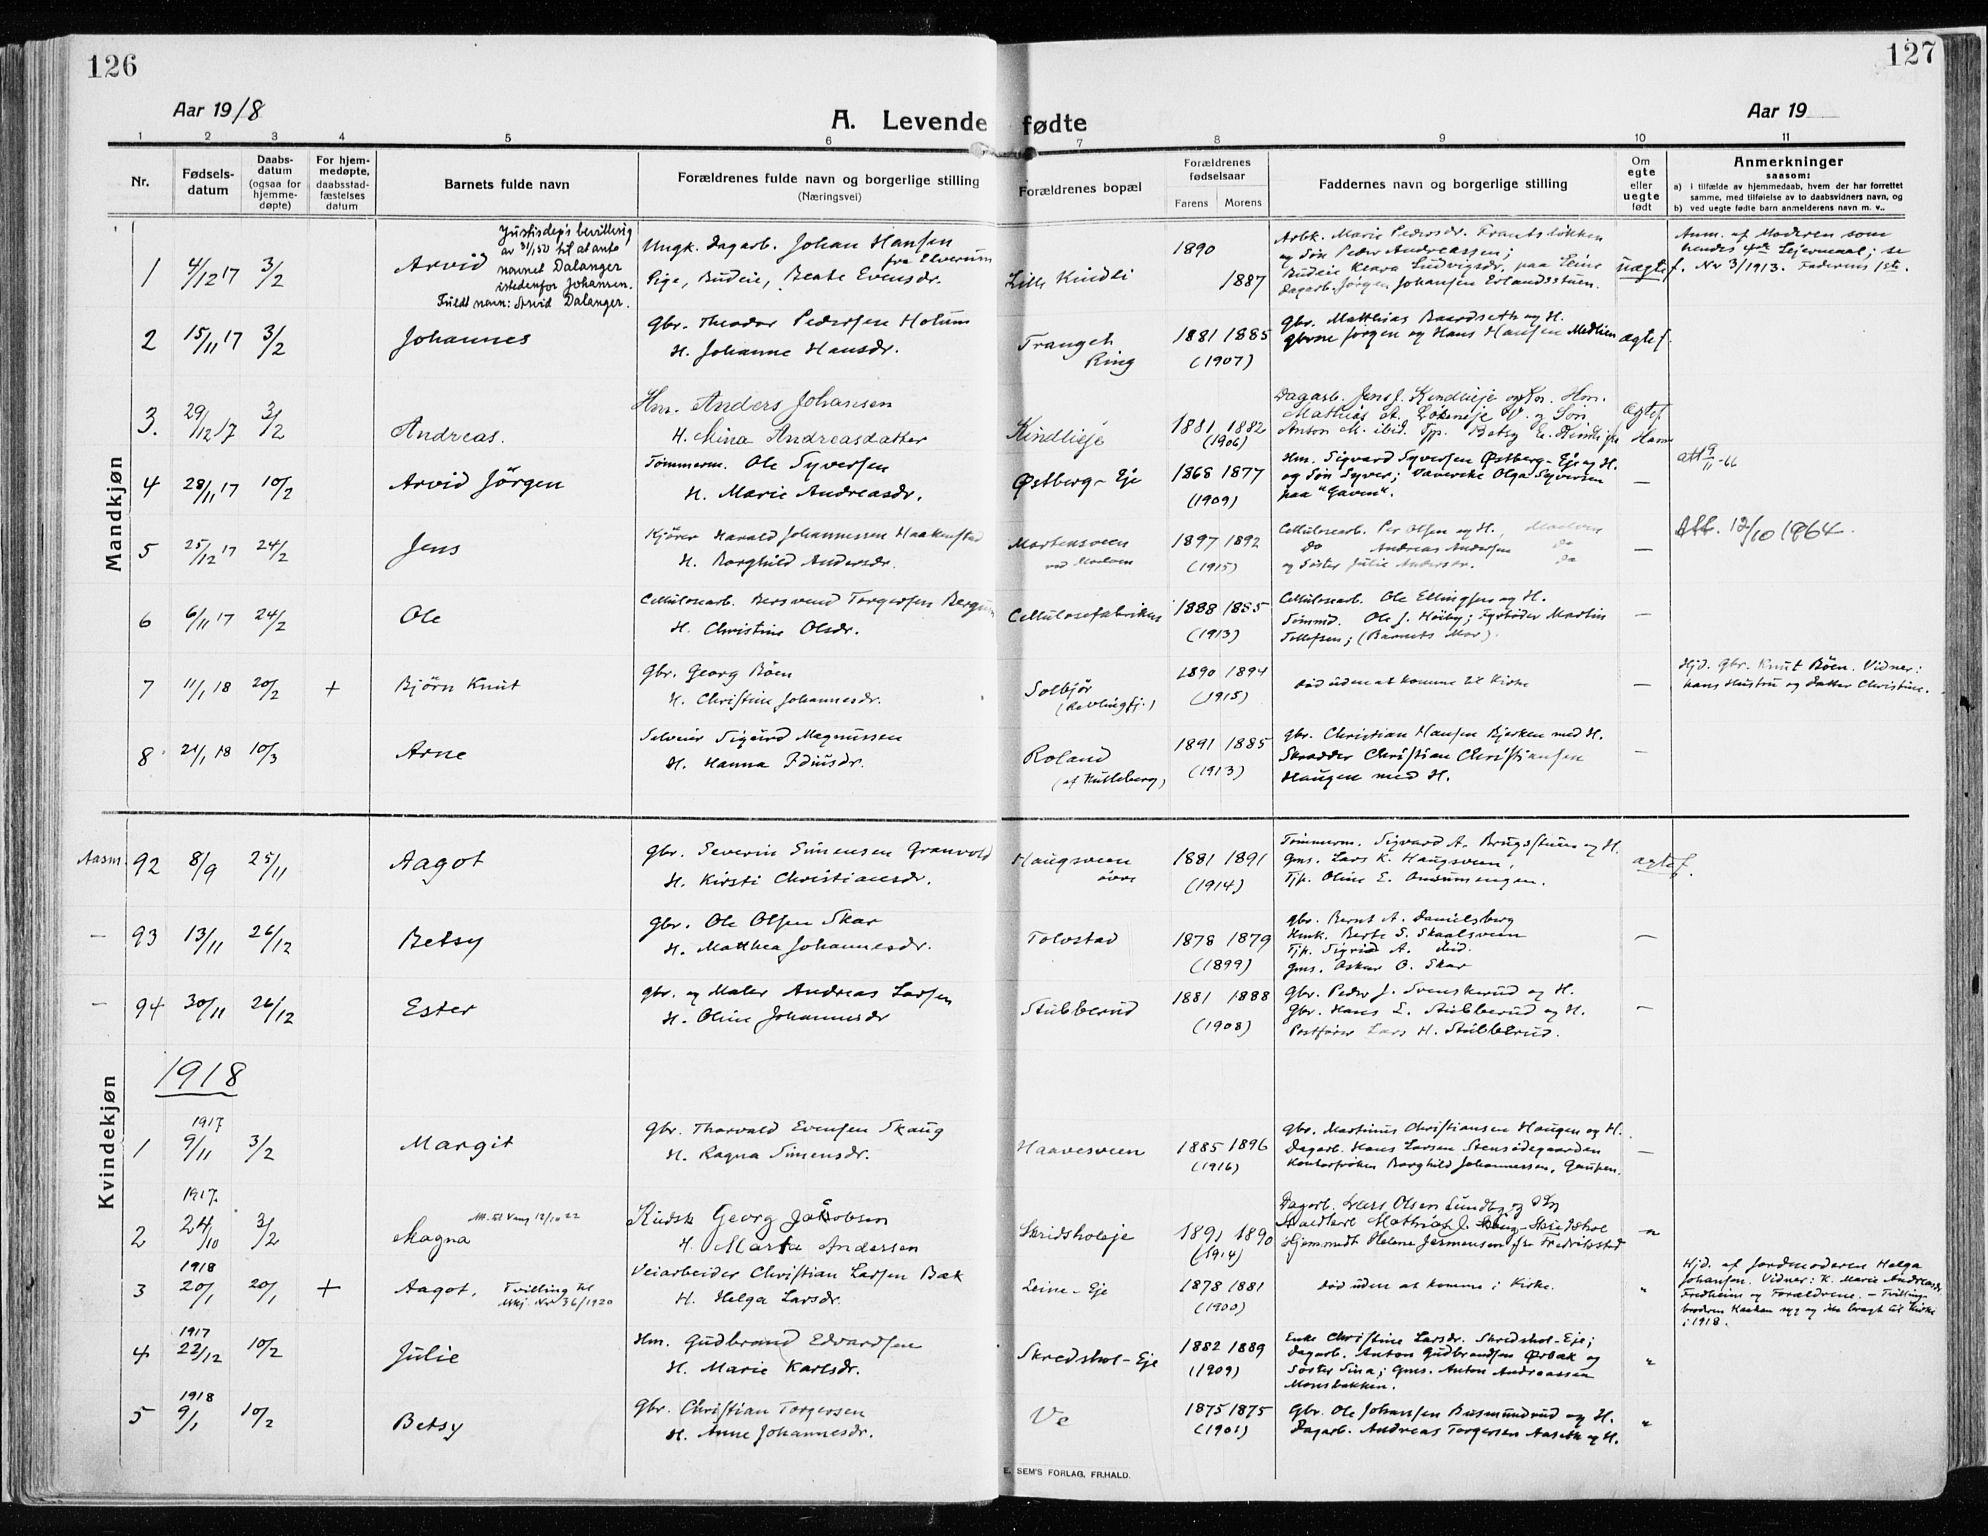 126
127
Aar 1918
A. Levende fødte
Aar 19
1 2 3 4 5 6 7 8 9 10 11
Nr.
Fødsels-datum
Daabs-datum (ogsaa for hjemme-døpte)
For hjem-medøpte, daabsstad-fæstelses datum
Barnets fulde navn
Forældrenes fulde navn og borgerlige stilling (Næringsvei)
Forældrenes bopæl
Forældrenes fødselsaar
Farens Morens
Faddernes navn og borgerlige stilling
Om egte eller uegte født
Anmerkninger
saasom:
a) i tilfælde av hjemmedaab, hvem der har forrettet samme, med tilføielse av to daabsvidners navn, og
b) ved uegte fødte barn anmelderens navn m. v..
Mandkjøn
1 4/12 17 3/2 Arvid
Justisdep's bevilling
av 31/1 50 til at anta
navnet Dalanger
istedenfor Johansen.
Fuldt navn: Arvid Dalanger.
Ungk. Dagarb. Johan Hansen
fra Elverum
Pige, Budeie, Beate Evensdr.
Lille Kindli
1890
1887
Arbk. Marie Pedersdr. Frantsløkken
og Søn Peder Andreassen;
Budeie Klara Ludvigsdr. paa Leine
Dagarb. Jørgen Johansen Erlandsstuen.
uægtef.
Anm. af Moderen som
hendes Lejermaal; se
Nr 3/1913. Faderens 1ste.
2 15/11 17 3/2 Johannes
Gbr. Theodor Pedersen Holum
H. Johanne Hansdr.
Tranget
Ring
1881 1885
(1907)
Gbr. Matthias Baardseth og H.
Gbrne Jørgen og Hans Hansen Medlien
ægtef.
3. 29/12 17 3/2 Andreas.
Hm. Anders Johansen
H. Mina Andreasdatter
Kindlieje
1881 1882
(1906)
Dagarb. Jens J. Kindlieje og Kn. Hm.
Mathias A. Løkeneje og Søn
Anton M. ibid. Tjp. Betsy E. Kindlieje
Ægtef.
4 28/11 17 10/2 Arvid Jörgen
Tømmerm. Ole Syversen
H. Marie Andreasdr.
Østberg-Eje
1868 1877
(1909)
Hm. Sigvard Syversen Østberg-Eje og H.
og Søn Syver; Væverske Olga Syversen
paa "Gaven".
—
att 9/11-66
5 25/12 17 24/2 Jens
Kjører Harald Johannessen Haakenstad
H. Borghild Andersdr.
Mortensveen
ved Moelven
1897 1892
(1915)
Cellulosearb. Per Olsen og H., Moelven
Do Andreas Andersen Do
og Søster Julie Andersdr. Do
—
Att. 12/10 1964.
6 6/11 17 24/2 Ole
Cellulosearb. Bersvend Torgersen Bergum
H. Christine Olsdr.
Cellulosefabrikken
1888 1885
(1913)
Cellulosearb. Ole Ellingsen og H.
Tømmd. Ole J. Høiby; Fyrbøder Martin
Tollefsen; (Barnets Mor).
—
7 11/1 18 20/2 + Bjørn Knut
Gbr. Georg Bøen
H. Christine Johannesdr.
Solbjør
(Kævlingfj.)
1890 1894
(1915)
Død uden at komme til Kirke
—
Hjd. gbr. Knut Bøen. Vidner:
hans Hustru og Datter Christine.
8 21/1 18 10/3 Arne
Selveier Sigurd Magnussen
H. Hanna Idiusdr.
Roland
(af Kutteberg)
1891 1885
(1913)
gbr. Christian Hansen Bjerken med H.
Skrædder Christian Christiansen
Haugen med H.
—
Kvindekjøn
Aasm. 92 8/9 25/11 Aagot
Gbr. Severin Simensen Granvold
H. Kirsti Christiansdr.
Haugsveen
øvre
1881 1891
(1914)
Tømmerm. Sigvard A. Brugsstuen og H.
Gms. Lars K. Haugsveen,
Tjp. Oline E. Aarumsengen.
ægtef.
— 93 13/11 26/12 Betsy
Gbr. Ole Olsen Skar
H. Matthea Johannesdr.
Tolvstad
1878 1879
(1899)
gbr. Bernt A. Danielsberg
Enk. Berte S. Skaalsveen
Tjp. Sigrid A. ibid.
gms. Oskar O. Skar
—
— 94 30/11 26/12 Ester
Gbr. og Maler Andreas Larsen
H. Oline Johannesdr
Stubberud
1881 1888
(1908)
Gbr. Peder J. Svenskerud og H.
Gbr. Hans L. Stubberud og H.
Postfører Lars H. Stubberud.
—
1918
1917
1 9/11 3/2 Margit
Gbr. Thorvald Evensen Skaug
H. Ragna Simensdr.
Haavesveen
1885 1896
(1916)
Gbr. Martinus Christiansen Haugen og H.
Dagarb. Hans Larsen Stensødegaarden
Kontorfrøken Borghild Johannessen, Gaupen.
—
1917.
2 24/10 3/2 Magna
Att. til Vang 12/10 22
Kudsk Georg Jakobsen
H. Marta Andersen
Skridsholeje
1891 1890
(1914)
Dagarb. Lars Olsen Lundby og
Mathias J. Skridshol
Hjemmedt Helene Jermensen fra Fredrikstad
"
1918
3 20/1 20/1 + Aagot,
Tvilling til
Mkj. Nr 36/1920
Veiarbeider Christian Larsen Bak
H. Helga Larsdr.
Leine-Eje
1878 1881
(1900)
Død uden at komme i Kirke.
"
Hjd. af Jordmoderen Helga
Johansen. Vidner: K. Marie Andreasdr.
Fredheim og Forældrene. — Tvilling-
broderen Haakon syg og ikke bragt til Kirke
i 1918.
1917
4 22/12 10/2 Julie
Hm. Gudbrand Edvardsen
H. Marie Karlsdr.
Skredshol-Eje
1882 1889
(1909)
Enke Christine Larsdr. Skredshol-Eje;
Dagarb. Anton Gudbrandsen Ørbæk og
Søster Sina; Gms. Anton Andreassen
Monsbakken.
"
1918
5 9/1 10/2 Betsy
Gbr. Christian Torgersen
H. Anne Johannesdr.
Ve
1875 1875
(1901)
Gbr. Ole Johansen Busmundrud og H.
Dagarb. Andreas Torgersen Aaseth og H.
"
E. SEM'S FORLAG, FR.HALD.